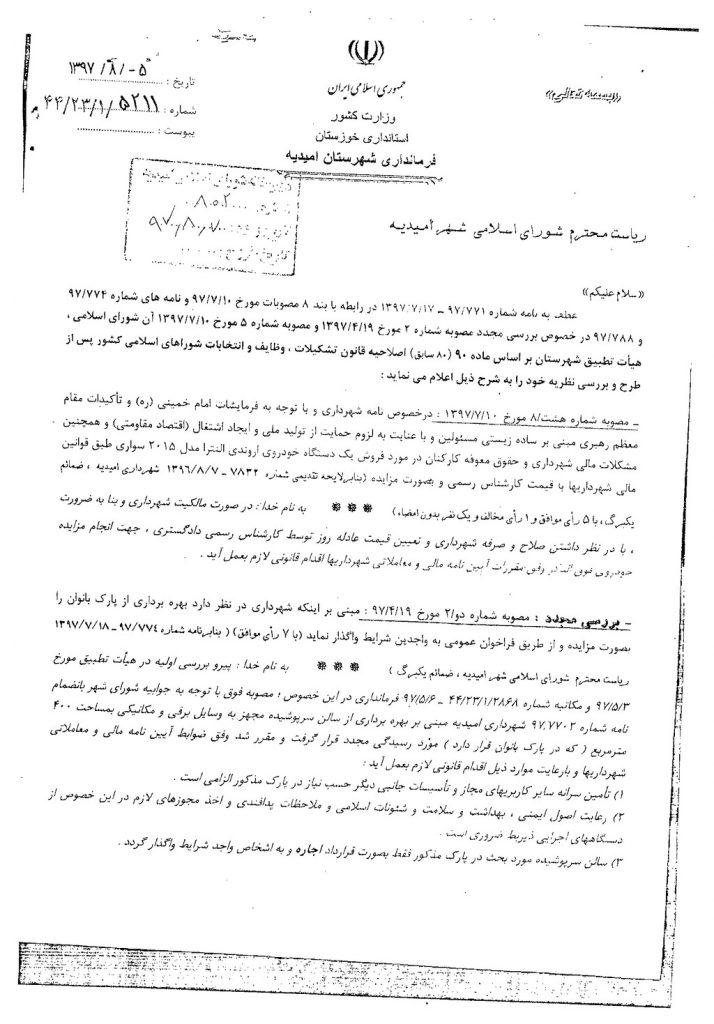 «بسمه تعالی»
جمهوری اسلامی ایران
وزارت کشور
استانداری خوزستان
فرمانداری شهرستان امیدیه
تاریخ : ۱۳۹۷/۸/-۵
شماره : ۴۴/۲۳/۱/۵۲۱۱
پیوست :
ریاست محترم شورای اسلامی شهر امیدیه
«سلام علیکم»
عطف به نامه شماره ۹۷/۷۷۱ – ۱۳۹۷/۷/۱۷ در رابطه با بند ۸ مصوبات مورخ ۹۷/۷/۱۰ و نامه های شماره ۹۷/۷۷۴
و ۹۷/۷۸۸ در خصوص بررسی مجدد مصوبه شماره ۲ مورخ ۱۳۹۷/۴/۱۹ و مصوبه شماره ۵ مورخ ۱۳۹۷/۷/۱۰ آن شورای اسلامی ،
هیأت تطبیق شهرستان بر اساس ماده ۹۰ (۸۰ سابق) اصلاحیه قانون تشکیلات ، وظایف و انتخابات شوراهای اسلامی کشور پس از
طرح و بررسی نظریه خود را به شرح ذیل اعلام می نماید :
– مصوبه شماره هشت/۸ مورخ ۱۳۹۷/۷/۱۰ : درخصوص نامه شهرداری و با توجه به فرمایشات امام خمینی (ره) و تأکیدات مقام
معظم رهبری مبنی بر ساده زیستی مسئولین و با عنایت به لزوم حمایت از تولید ملی و ایجاد اشتغال (اقتصاد مقاومتی) و همچنین
مشکلات مالی شهرداری و حقوق معوقه کارکنان در مورد فروش یک دستگاه خودروی اروندی النترا مدل ۲۰۱۵ سواری طبق قوانین
مالی شهرداریها با قیمت کارشناس رسمی و بصورت مزایده (بنابرلایحه تقدیمی شماره ۷۸۳۲ – ۱۳۹۶/۸/۷ شهرداری امیدیه ، ضمائم
یکبرگ ، با ۵ رأی موافق و ۱ رأی مخالف و یک نفر بدون امضاء) *** به نام خدا : در صورت مالکیت شهرداری و بنا به ضرورت
، با در نظر داشتن صلاح و صرفه شهرداری و تعیین قیمت عادله روز توسط کارشناس رسمی دادگستری ، جهت انجام مزایده
خودروی فوق الذکر وفق مقررات آیین نامه مالی و معاملاتی شهرداریها اقدام قانونی لازم بعمل آید .
– بررسی مجدد : مصوبه شماره دو/۲ مورخ ۹۷/۴/۱۹ : مبنی بر اینکه شهرداری در نظر دارد بهره برداری از پارک بانوان را
بصورت مزایده و از طریق فراخوان عمومی به واجدین شرایط واگذار نماید (با ۷ رأی موافق) ( بنابرنامه شماره ۹۷/۷۷۴ – ۱۳۹۷/۷/۱۸
ریاست محترم شورای اسلامی شهر امیدیه ، ضمائم یکبرگ ) *** به نام خدا : پیرو بررسی اولیه در هیأت تطبیق مورخ
۹۷/۵/۳ و مکاتبه شماره ۴۴/۲۳/۱/۲۸۶۸ – ۹۷/۵/۶ فرمانداری در این خصوص ؛ مصوبه فوق با توجه به جوابیه شورای شهر بانضمام
نامه شماره ۹۷.۷۷۰۲ شهرداری امیدیه مبنی بر بهره برداری از سالن سرپوشیده مجهز به وسایل برقی و مکانیکی بمساحت ۴۰۰
مترمربع ( که در پارک بانوان قرار دارد ) مورد رسیدگی مجدد قرار گرفت و مقرر شد وفق ضوابط آیین نامه مالی و معاملاتی
شهرداریها و بارعایت موارد ذیل اقدام قانونی لازم بعمل آید :
۱) تأمین سرانه سایر کاربریهای مجاز و تأسیسات جانبی دیگر حسب نیاز در پارک مذکور الزامی است .
۲) رعایت اصول ایمنی ، بهداشت و سلامت و شئونات اسلامی و ملاحظات پدافندی و اخذ مجوزهای لازم در این خصوص از
دستگاههای اجرایی ذیربط ضروری است .
۳) سالن سرپوشیده مورد بحث در پارک مذکور فقط بصورت قرارداد اجاره و به اشخاص واجد شرایط واگذار گردد .